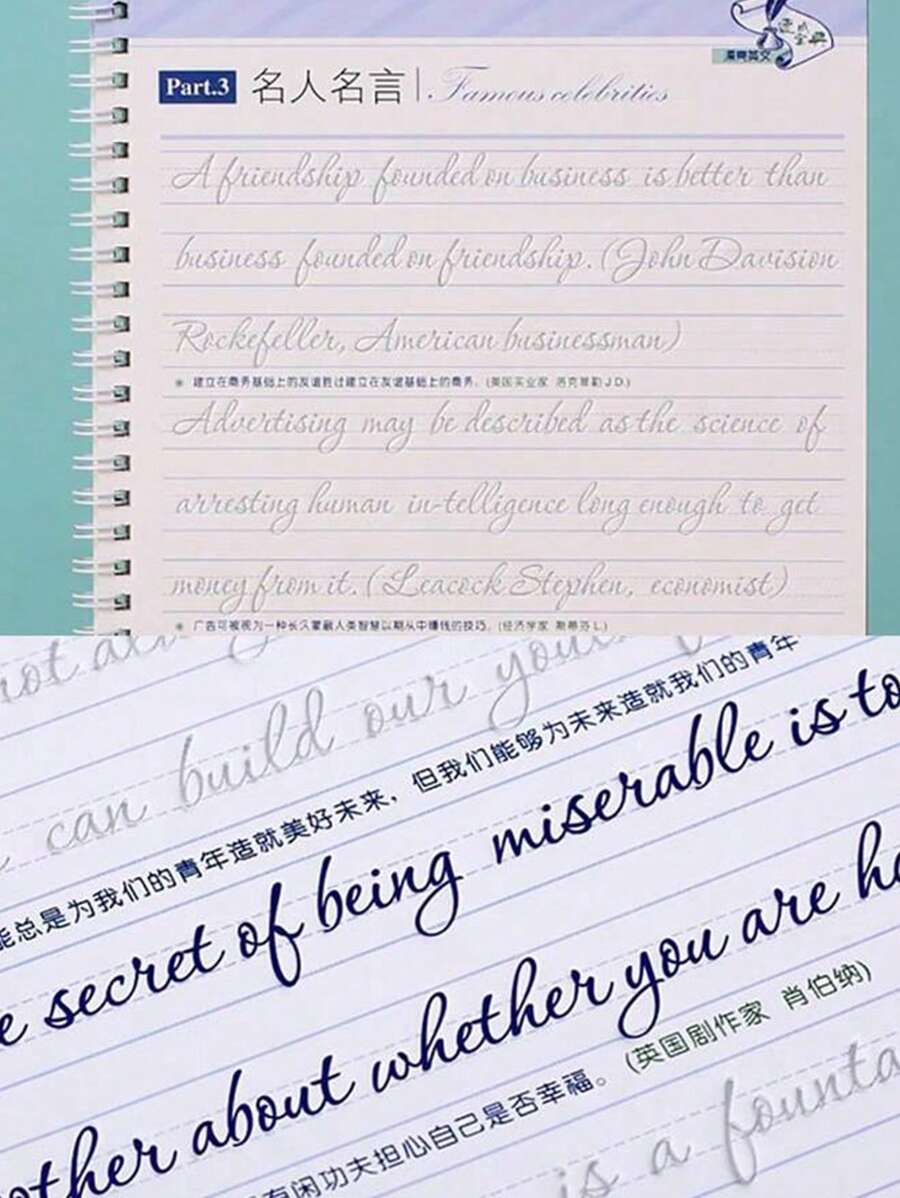 Part.3 名人名言 Famous celebrities
A friendship founded on business is better than
business founded on friendship. (John Davision
Rockefeller, American businessman)
建立在商务基础上的友谊胜过建立在友谊基础上的商务。(美国实业家 洛克菲勒 J.D.)
Advertising may be described as the science of
arresting human in-telligence long enough to get
money from it. (Leacock Stephen, economist)
广告可被视为一种长久蒙蔽人类智慧以期从中赚钱的技巧。(经济学家 斯蒂芬 L.)
not
can build our
能总是为我们的青年造就美好未来，但我们能够为未来造就我们的青年
secret of being miserable is to
other about whether you are
有闲功夫担心自己是否幸福。 (英国剧作家 肖伯纳)
is a